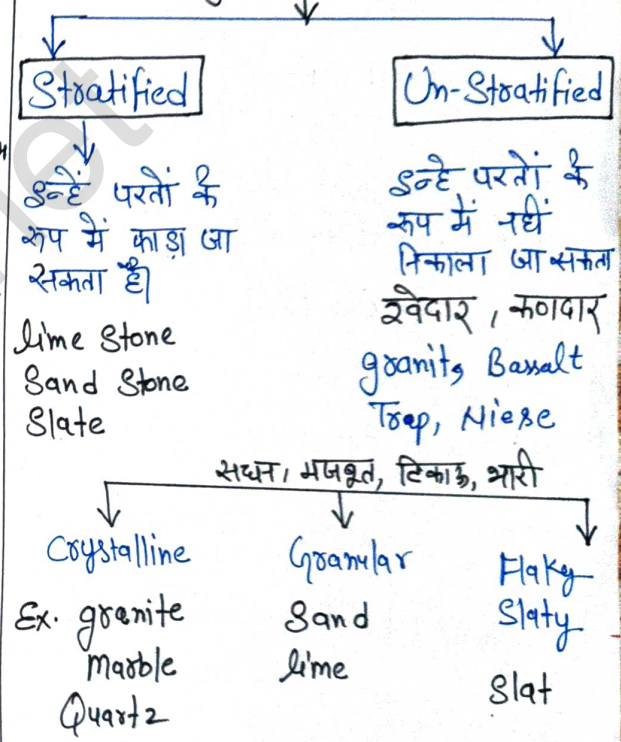 Stratified
इन्हें परतों के
रूप में फाड़ा जा
सकता है।
lime stone
Sand Stone
Slate
Un-Stratified
इन्हे परतों के
रूप में नहीं
निकाला जा सकता
रवेदार, कणदार
granite, Bassalt
Trap, Niese
सघन, मजबूत, टिकाऊ, भारी
Crystalline
Ex. granite
marble
Quartz
Granular
Sand
lime
Flaky
Slaty
Slat